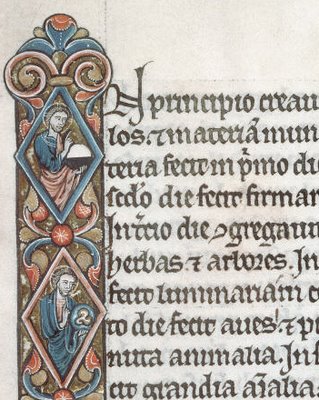 A principio creau
los. ⁊ materiā mun
teria fecit in p̄mo di
scd̄o die fecit firmam
In t'cio die ꝯgregauit
herbas. ⁊ arbores. In
fecit luminaria. in
to die fecit aues. ⁊ p
nuta animalia. In s
cit grandia aīalia.